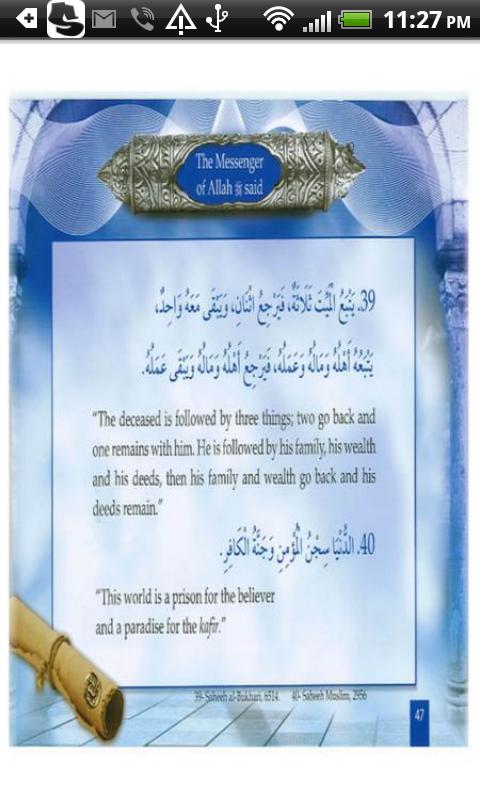 11:27 PM
The Messenger
of Allah ﷺ said
39. يَتْبَعُ الْمَيِّتَ ثَلَاثَةٌ، فَيَرْجِعُ اثْنَانِ، وَيَبْقَى مَعَهُ وَاحِدٌ،
يَتْبَعُهُ أَهْلُهُ وَمَالُهُ وَعَمَلُهُ، فَيَرْجِعُ أَهْلُهُ وَمَالُهُ وَيَبْقَى عَمَلُهُ.
“The deceased is followed by three things; two go back and
one remains with him. He is followed by his family, his wealth
and his deeds, then his family and wealth go back and his
deeds remain.”
40. الدُّنْيَا سِجْنُ الْمُؤْمِنِ وَجَنَّةُ الْكَافِرِ.
“This world is a prison for the believer
and a paradise for the kafir.”
39- Saheeh al-Bukhari, 6514. 40- Saheeh Muslim, 2956
47